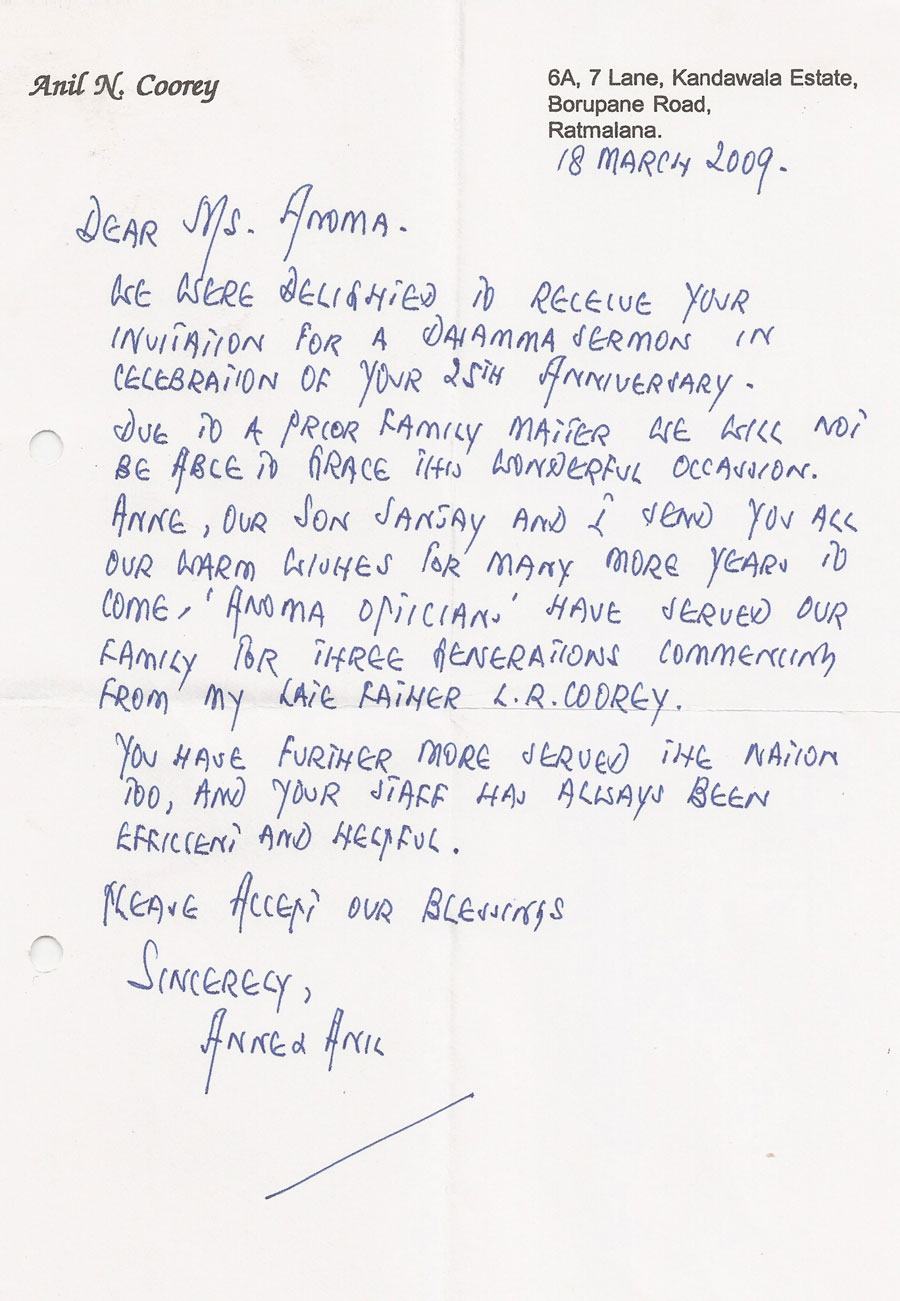 Anil N. Coorey
6A, 7 Lane, Kandawala Estate,
Borupane Road,
Ratmalana.
18 MARCH 2009.
DEAR MS. ANOMA.
WE WERE DELIGHTED TO RECEIVE YOUR
INVITATION FOR A DHAMMA SERMON IN
CELEBRATION OF YOUR 25TH ANNIVERSARY.
DUE TO A PRIOR FAMILY MATTER WE WILL NOT
BE ABLE TO GRACE THIS WONDERFUL OCCASSION.
ANNE, OUR SON SANJAY AND I SEND YOU ALL
OUR WARM WISHES FOR MANY MORE YEARS TO
COME, 'ANOMA OPTICIANS' HAVE SERVED OUR
FAMILY FOR THREE GENERATIONS COMMENCING
FROM MY LATE FATHER L.R. COOREY.
YOU HAVE FURTHER MORE SERVED THE NATION
TOO, AND YOUR STAFF HAS ALWAYS BEEN
EFFICIENT AND HELPFUL.
PLEASE ACCEPT OUR BLESSINGS
SINCERELY,
ANNE & ANIL